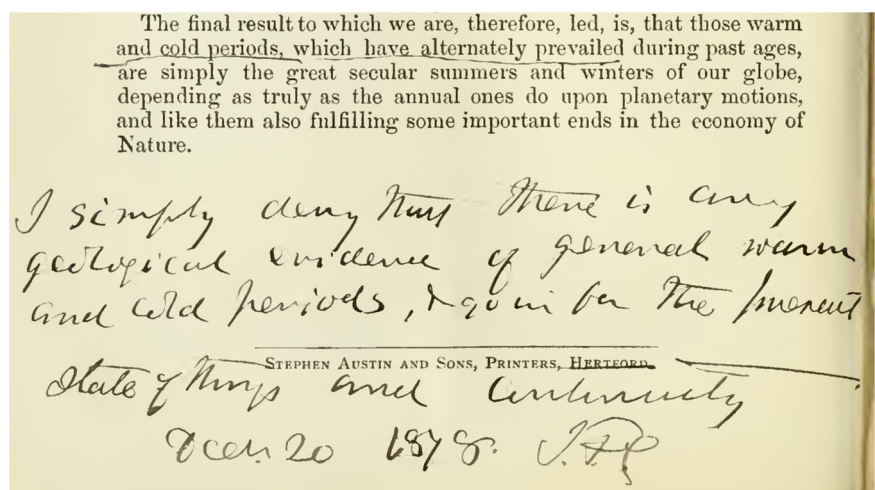 The final result to which we are, therefore, led, is, that those warm
and cold periods, which have alternately prevailed during past ages,
are simply the great secular summers and winters of our globe,
depending as truly as the annual ones do upon planetary motions,
and like them also fulfilling some important ends in the economy of
Nature.
I simply deny that there is any
geological evidence of general warm
and cold periods, & go in for the present
STEPHEN AUSTIN AND SONS, PRINTERS, HERTFORD.
state of things and continuity
Decr. 20 1878.